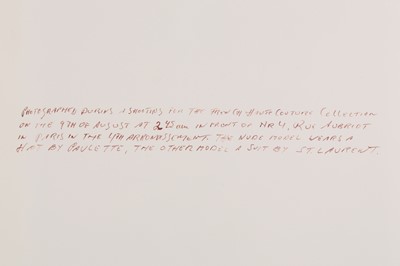 PHOTOGRAPHED DURING A SHOOTING FOR THE FRENCH HAUTE COUTURE COLLECTION
ON THE 9TH OF AUGUST AT 2 45 AM IN FRONT OF NR 4, RUE AUBRIOT
IN PARIS IN THE 4TH ARRONDISSEMENT. THE NUDE MODEL WEARS A
HAT BY PAULETTE, THE OTHER MODEL A SUIT BY ST. LAURENT.